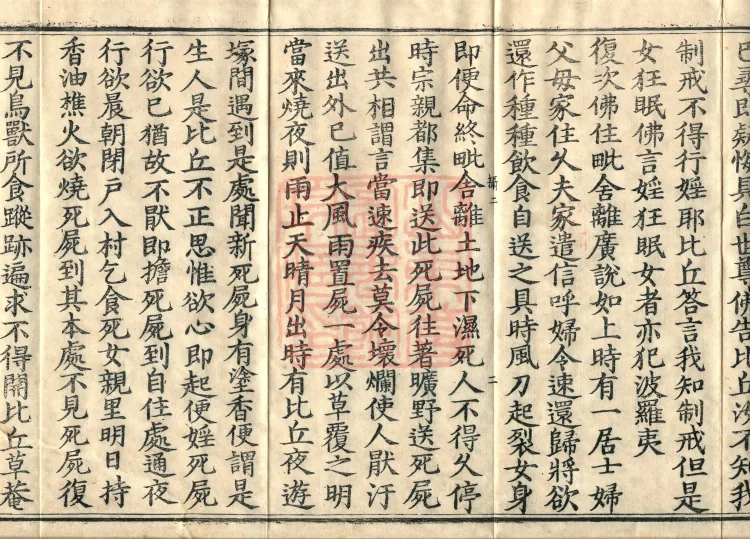 疑悔具白世尊佛告比丘汝不知我
制戒不得行婬耶比丘答言我知制戒但是
女狂眠佛言婬狂眠女者亦犯波羅夷
復次佛住毗舍離廣說如上時有一居士婦
父母家住久夫家遣信呼婦令速還歸將欲
還作種種飲食自送之具時風刀起裂女身
攝二 二
即便命終毗舍離土地下濕死人不得久停
時宗親都集即送此死屍往著曠野送死屍
出共相謂言當速疾去莫令壞爛使人厭汙
送出外已值大風雨置屍一處以草覆之明
當來燒夜則雨止天晴月出時有比丘夜遊
塚間遇到是處聞新死屍身有塗香便謂是
生人是比丘不正思惟欲心即起便婬死屍
行欲已猶故不厭即擔死屍到自住處通夜
行欲晨朝閉戶入村乞食死女親里明日持
香油樵火欲燒死屍到其本處不見死屍復
不見鳥獸所食蹤跡遍求不得開比丘草菴